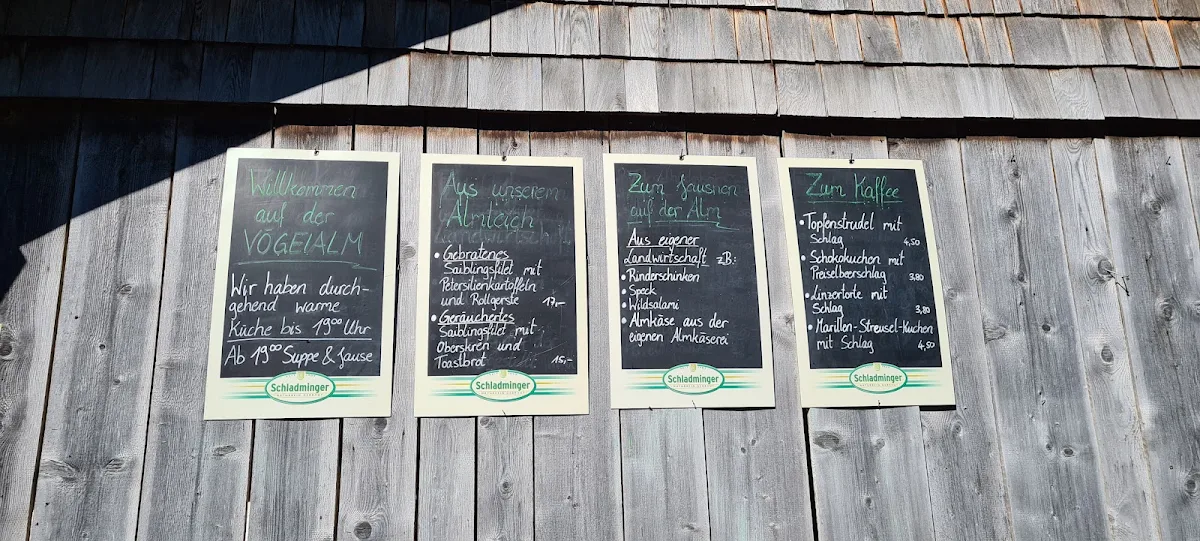 Willkommen
auf der
VÖGEIALM
Wir haben durch-
gehend warme
Küche bis 19⁰⁰ Uhr
Ab 19⁰⁰ Suppe & Jause
Schladminger
Aus unserem
Almteich
• Gebratenes
Saiblingsfilet mit
Petersilienkartoffeln
und Rollgerste 17,-
• Geräuchertes
Saiblingsfilet mit
Oberskren und
Toastbrot 15,-
Schladminger
Zum Jausnen
auf der Alm
Aus eigener
Landwirtschaft zB:
• Rinderschinken
• Speck
• Wildsalami
• Almkäse aus der
eigenen Almkäserei
Schladminger
Zum Kaffee
• Topfenstrudel mit
Schlag 4,50
• Schokokuchen mit
Preiselbeerschlag 3,80
• Linzertorte mit
Schlag 3,80
• Marillen-Streusel-Kuchen
mit Schlag 4,50
Schladminger